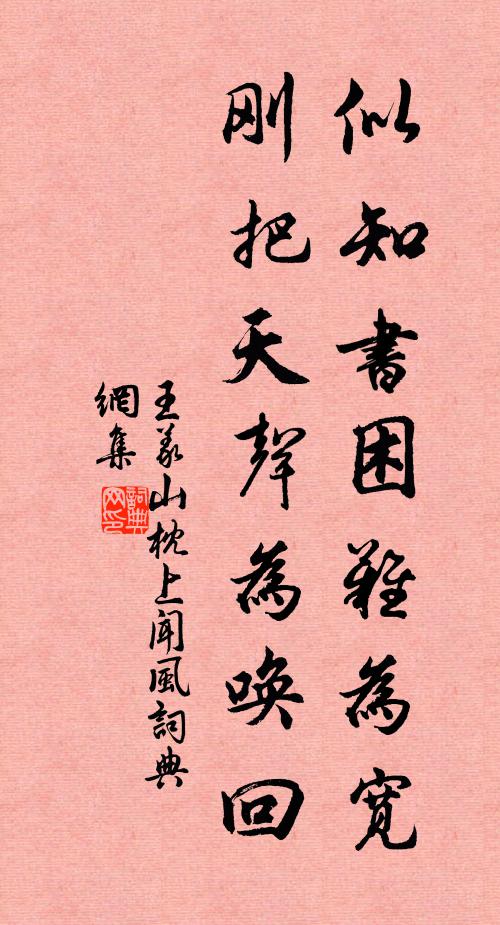 似知書困難為寬
剛把天聲為喚回
王義山枕上聞風詞典
網集
詞典网印